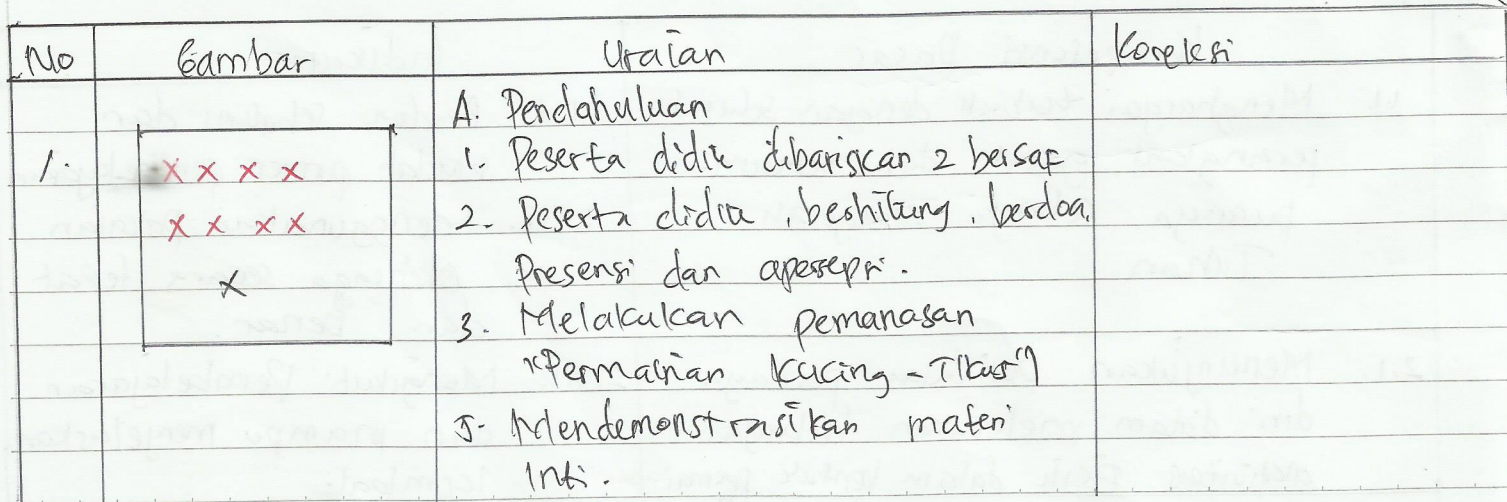 No Gambar Uraian Koreksi
A. Pendahuluan
1. 1. Peserta didik dibariskan 2 bersaf
x x x x
2. Peserta didik, berhitung, berdoa,
x x x x
Presensi dan apersepri.
x
3. Melakukan pemanasan
"Permainan Kucing - Tikus")
5. Mendemonstrasikan materi
Inti.